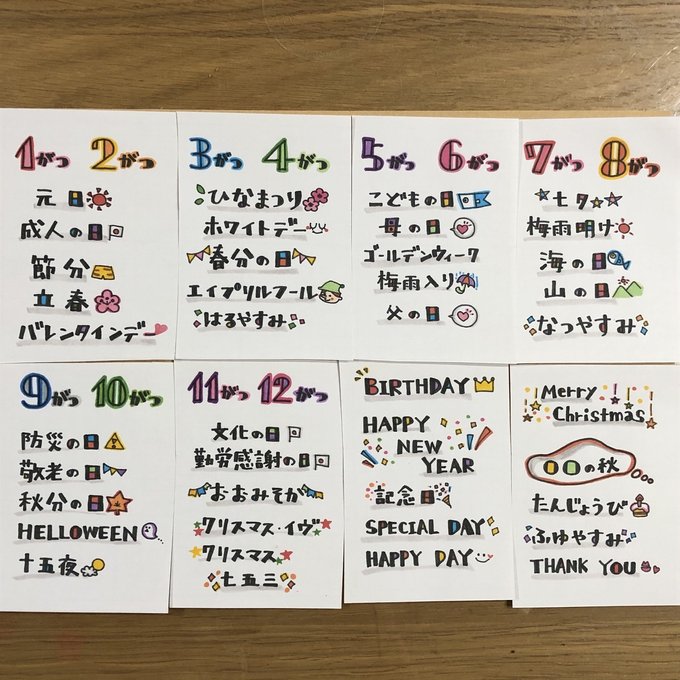 1がつ 2がつ
元日
成人の日
節分
立春
バレンタインデー
3がつ 4がつ
ひなまつり
ホワイトデー
春分の日
エイプリルフール
はるやすみ
5がつ 6がつ
こどもの日
母の日
ゴールデンウィーク
梅雨入り
父の日
7がつ 8がつ
七夕
梅雨明け
海の日
山の日
なつやすみ
9がつ 10がつ
防災の日
敬老の日
秋分の日
HELLOWEEN
十五夜
11がつ 12がつ
文化の日
勤労感謝の日
おおみそか
クリスマス・イヴ
クリスマス
七五三
BIRTHDAY
HAPPY
NEW
YEAR
記念日
SPECIAL DAY
HAPPY DAY
Merry
Christmas
〇〇の秋
たんじょうび
ふゆやすみ
THANK YOU